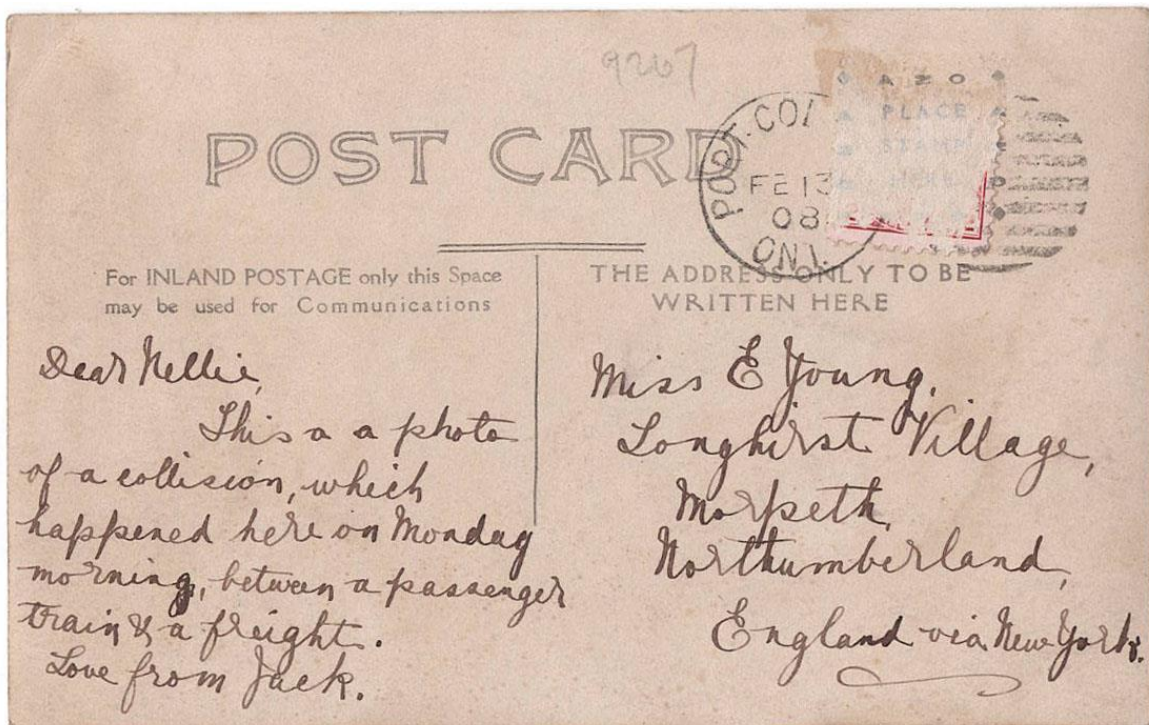 9267
AZO
PLACE
STAMP
HERE
POST CARD
PORT. COL
FE 13
08
ONT.
For INLAND POSTAGE only this Space
may be used for Communications
THE ADDRESS ONLY TO BE
WRITTEN HERE
Dear Nellie,
This a a photo
of a collision, which
happened here on Monday
morning, between a passenger
train & a freight.
Love from Jack.
Miss E Young,
Longhirst Village,
Morpeth,
Northumberland,
England via New York.